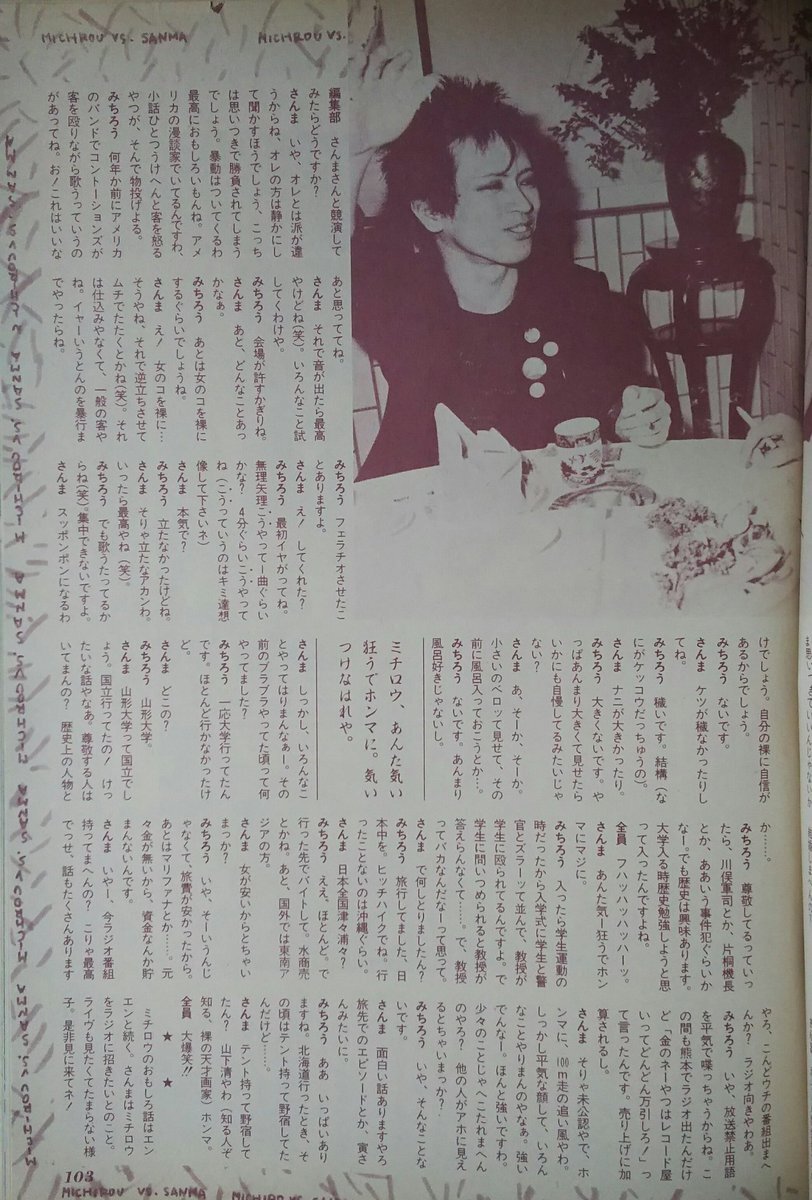 MICHIROU VS. SANMA
MICHIROU VS.
編集部　さんまさんと競演して
みたらどうですか?
さんま　いや、オレとは派が違
うからね、オレの方は静かにし
て聞かすほうでしょう、こっち
は思いつきで勝負されてしまう
でしょう。暴動はついてくるわ
最高におもしろいもんね。アメ
リカの漫談家でいてるんですわ、
小話ひとつうけへんと客を怒る
やつが、そんで物投げよる。
みちろう　何年か前にアメリカ
のバンドでコントーションズが
客を殴りながら歌うっていうの
があってね。お!これはいいな
あと思っててね。
さんま　それで音が出たら最高
やけどね(笑)。いろんなこと試
してくわけや。
みちろう　会場が許すかぎりね。
さんま　あと、どんなことあっ
かなぁ。
みちろう　あとは女のコを裸に
するぐらいでしょうね。
さんま　え!　女のコを裸に…
そうやね、それで逆立ちさせて
ムチでたたくとかね(笑)。それ
は仕込みやなくて、一般の客や
ね。イャーいうとんのを暴行ま
でやったらね。
みちろう　フェラチオさせたこ
とありますよ。
さんま　え!　してくれた?
みちろう　最初イヤがってね。
無理矢理こうやって一曲ぐらい
かな?　4分ぐらいこうやって
ね(こうっていうのはキミ達想
像して下さいネ)
さんま　本気で?
みちろう　立たなかったけどね。
さんま　そりゃ立たなアカンわ。
いったら最高やね(笑)。
みちろう　でも歌うたってるか
らね(笑)。集中できないですよ。
さんま　スッポンポンになるわ
けでしょう。自分の裸に自信が
あるからでしょう。
みちろう　ないです。
さんま　ケツが穢なかったりし
てね。
みちろう　穢いです。結構(な
にがケッコウだっちゅうの)。
さんま　ナニが大きかったり。
みちろう　大きくないです。や
っぱあんまり大きくて見せたら
いかにも自慢してるみたいじゃ
ない?
さんま　あ、そーか、そーか。
小さいのベロッて見せて、その
前に風呂入っておこうとか…。
みちろう　ないです。あんまり
風呂好きじゃないし。
ミチロウ、あんた気い
狂うでホンマに。気い
つけなはれや。
さんま　しっかし、いろんなこ
とやってはりまんなぁー。その
前のブラブラやってた頃って何
やってました?
みちろう　一応大学行ってたん
です。ほとんど行かなかったけ
ど。
さんま　どこの?
みちろう　山形大学。
さんま　山形大学って国立でし
ょう。国立行ってたの!　けっ
たいな話やなあ。尊敬する人は
いてまんの?　歴史上の人物と
か……。
みちろう　尊敬してるっていっ
たら、川俣軍司とか、片桐機長
とか、ああいう事件犯ぐらいか
なー。でも歴史は興味あります。
大学入る時歴史勉強しようと思
って入ったんですよね。
全員　フハッハッハッハーッ。
さんま　あんた気ー狂うでホン
マにマジに。
みちろう　入ったら学生運動の
時だったから入学式に学生と警
官とズラーッて並んで、教授が
学生に殴られてるんですよ。で
学生に問いつめられると教授が
答えらんなくて……。で、教授
ってバカなんだなーって思って。
さんま　で何しとりましたん?
みちろう　旅行してました、日
本中を。ヒッチハイクでね。行
ったことないのは沖縄ぐらい。
さんま　日本全国津々浦々?
みちろう　ええ、ほとんど。で
行った先でバイトして。水商売
とかね。あと、国外では東南ア
ジアの方。
さんま　女が安いからとちゃい
まっか?
みちろう　いや、そーいうんじ
ゃなくて、旅費が安かったから。
あとはマリファナとか……。元
々金が無いから、資金なんか貯
まんないんです。
さんま　いやー、今ラジオ番組
持ってまへんの?　こりゃ最高
でっせ、話もたくさんあります
やろ、こんどウチの番組出まへ
んか?　ラジオ向きやわあ。
みちろう　いや、放送禁止用語
を平気で喋っちゃうからね。こ
の間も熊本でラジオ出たんだけ
ど「金のネーやつはレコード屋
いってどんどん万引しろ!」っ
て言ったんです。売り上げに加
算されるし。
さんま　そりゃ未公認やで、ホ
ンマに、100m走の追い風やわ。
しっかし平気な顔して、いろん
なことやりまんのやなぁ。強い
でんなー。ほんと強いですわ。
少々のことじゃへこたれまへん
のやろ?　他の人がアホに見え
るとちゃいまっか?
みちろう　いや、そんなことな
いです。
さんま　面白い話ありますやろ
旅先でのエピソードとか、寅さ
んみたいに。
みちろう　ああ　いっぱいあり
ますね。北海道行ったとき、そ
の頃はテント持って野宿してた
んだけど……。
さんま　テント持って野宿して
たん?　山下清やわ(知る人ぞ
知る、裸の天才画家)ホンマ。
全員　大爆笑!!
★　　★
ミチロウのおもしろ話はエン
エンと続く。さんまはミチロウ
をラジオに招きたいとのこと。
ライヴも見たくてたまらない様
子。是非見に来てネ!
103
MICHIROU VS. SANMA